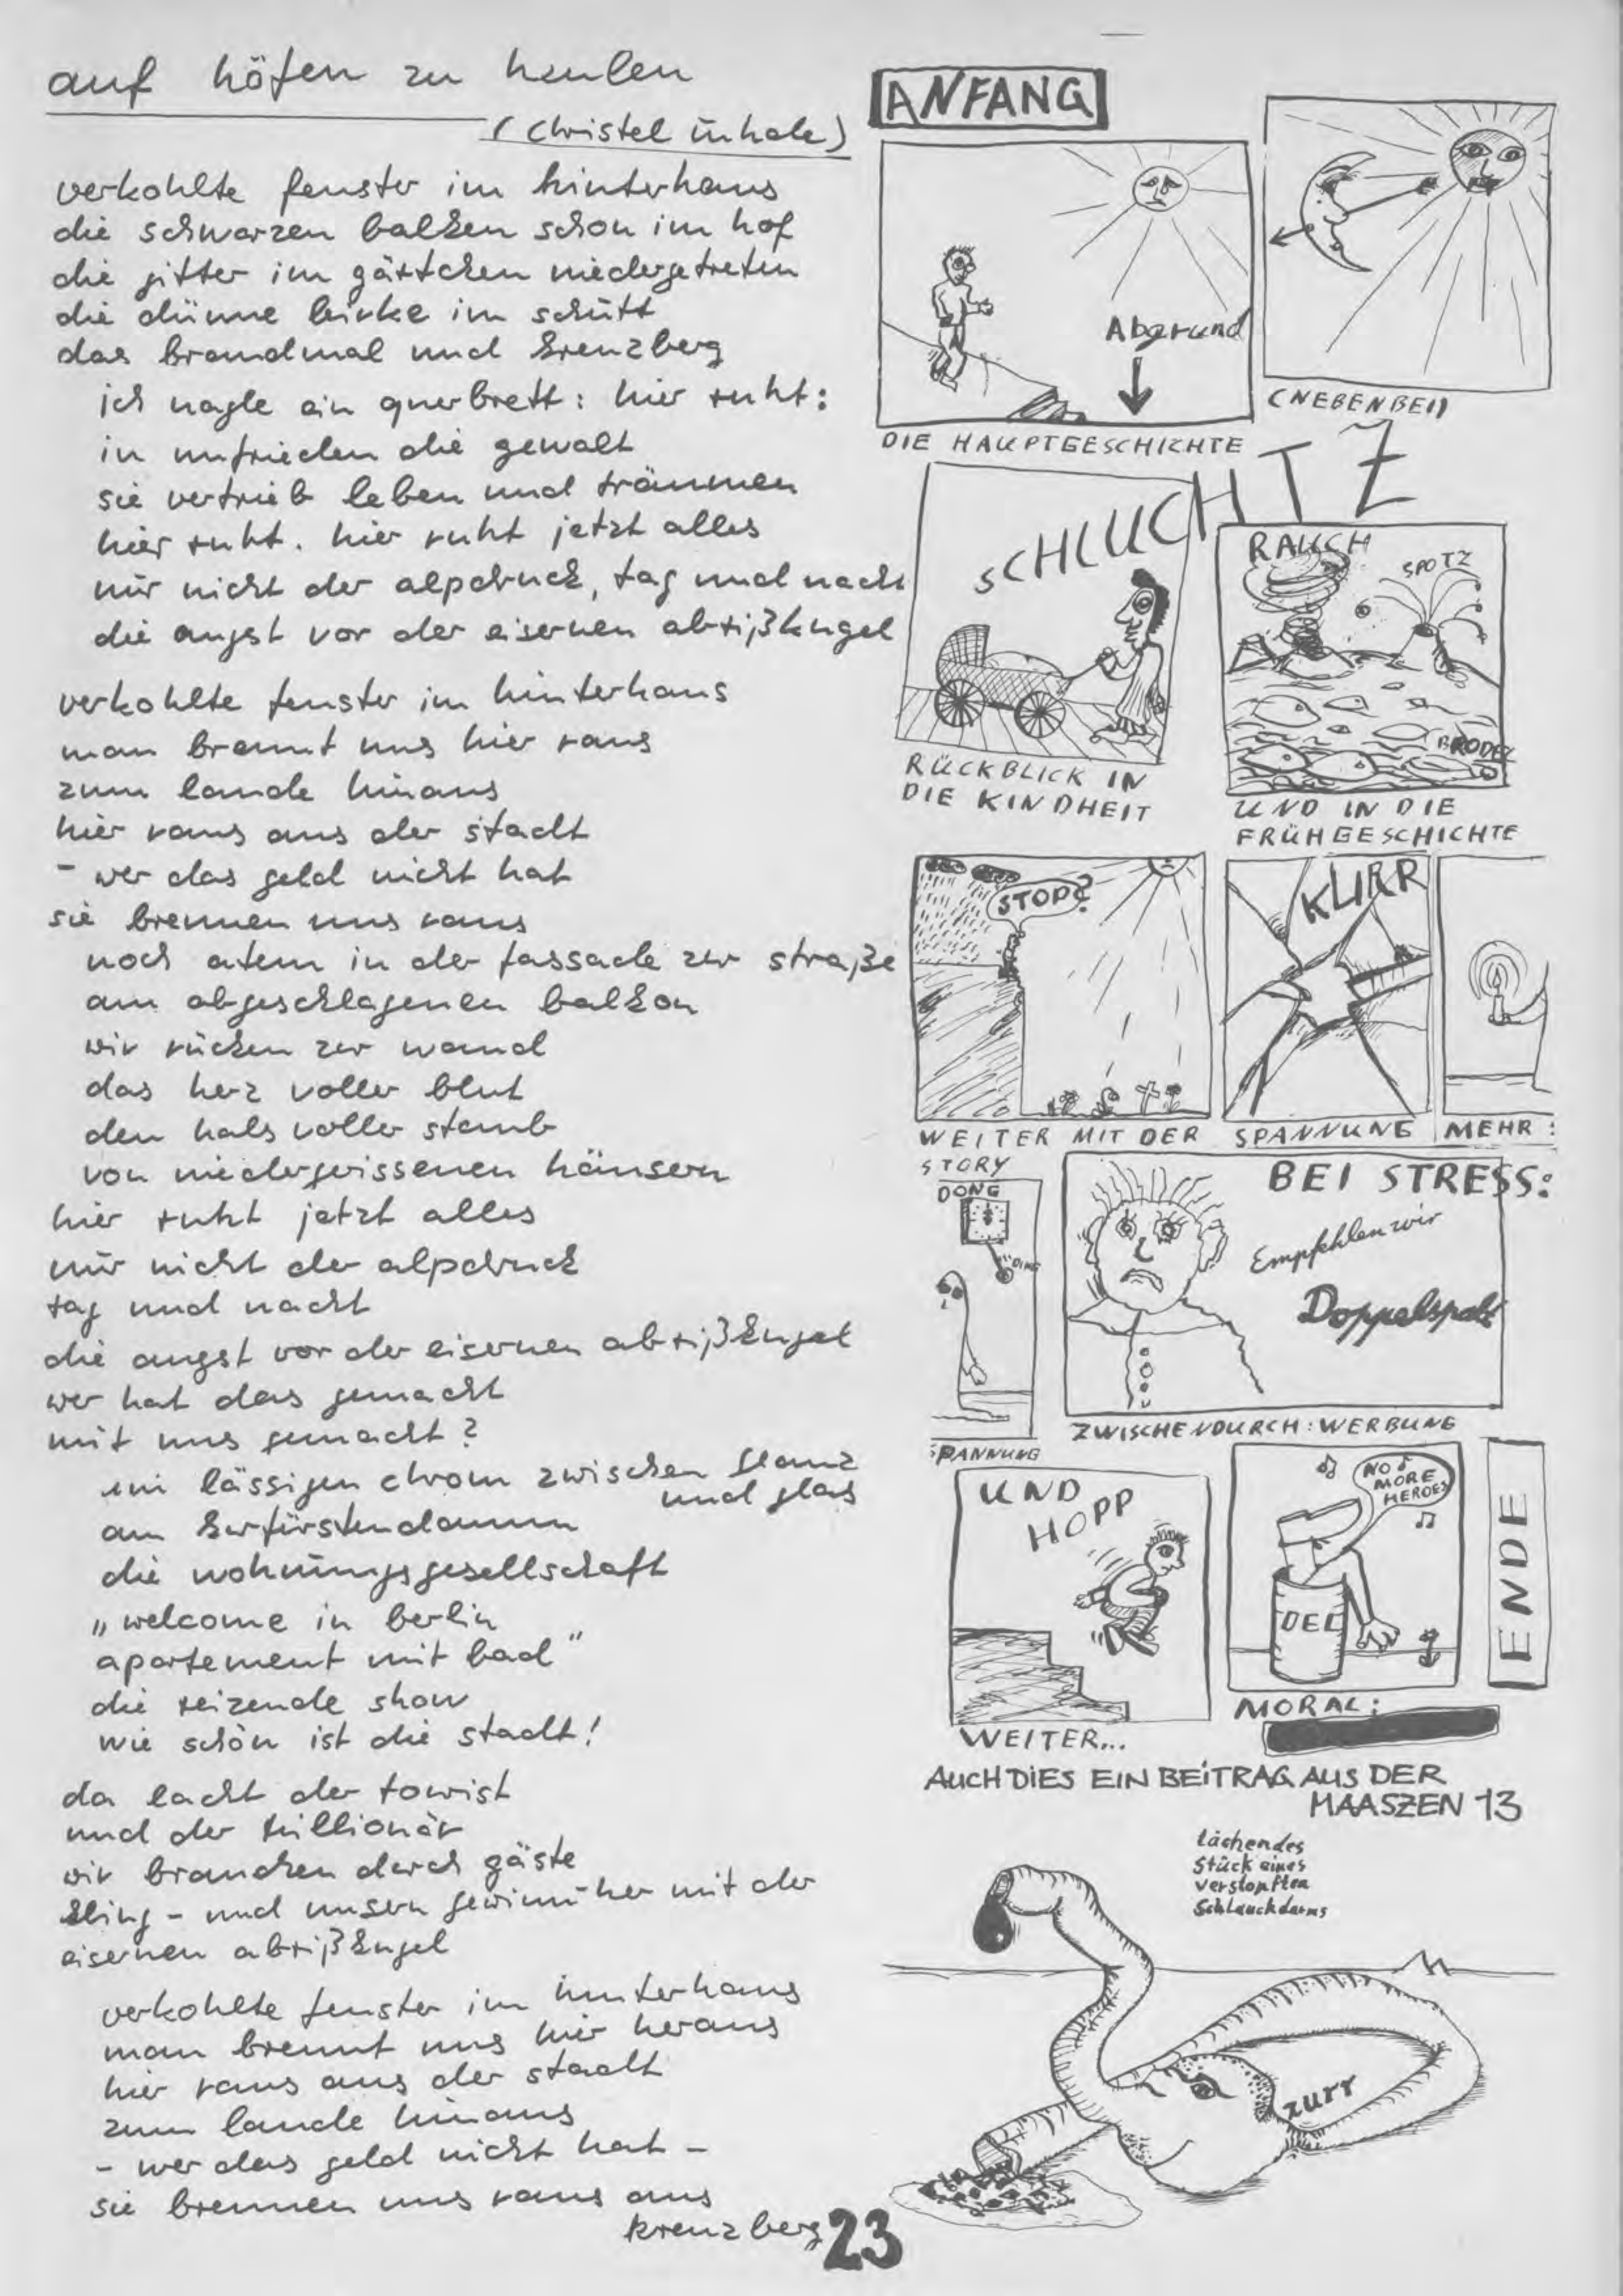 auf höfen zu heulen
(Christel
verkohlte fenster im hinterhaus
die schwarzen balken schon im hof
die gitter im gärtchen niedergetreten
die dünne birke im schutt
das brandmal und kreuzberg
ich nagle ein querbrett: hier ruht:
in unfrieden die gewalt
sie vertrieb leben und träumen
hier ruht. hier ruht jetzt alles
nur nicht der alpdruck, tag und nacht
die angst vor der eisernen abrißkugel
verkohlte fenster im hinterhaus
man brennt uns hier raus
zum lande hinaus
hier raus aus der stadt
- wer das geld nicht hat
sie brennen uns raus
noch atem in der fassade zur straße
am abgeschlagenen balkon
wir rücken zur wand
das herz voller blut
den hals voller staub
von niedergerissenen häusern
hier ruht jetzt alles
nur nicht der alpdruck
tag und nacht
die angst vor der eisernen abrißkugel
wer hat das gemacht
mit uns gemacht?
im lässigen chrom zwischen glanz
und glas
am kurfürstendamm
die wohnungsgesellschaft
„welcome in berlin
apartement mit bad"
die reizende show
wie schön ist die stadt!
da lacht der tourist
und der trillionär
wir brauchen derch gäste
kling - und unsern gewinn her mit der
eisernen abrißkugel
verkohlte fenster im hinterhaus
man brennt uns hier heraus
hier raus aus der stadt
zum lande hinaus
- wer das geld nicht hat -
sie brennen uns raus aus
kreuzberg
23
ANFANG
Abgrund
DIE HAUPTGESCHICHTE
(NEBENBEI)
SCHLUCHTZ
RÜCKBLICK IN
DIE KINDHEIT
RAUCH
SPOTZ
BRODEL
UND IN DIE
FRÜHGESCHICHTE
STOP?
WEITER MIT DER
STORY
KLIRR
SPANNUNG
MEHR:
DONG
DING
SPANNUNG
BEI STRESS:
Empfehlen wir
Doppelspalt
ZWISCHENDURCH: WERBUNG
UND
HOPP
WEITER...
NO
MORE
HEROES
OEL
MORAL:
ENDE
AUCH DIES EIN BEITRAG AUS DER
MAASZEN 13
Lächendes
Stück eines
verstopften
Schlauchdarms
zurr